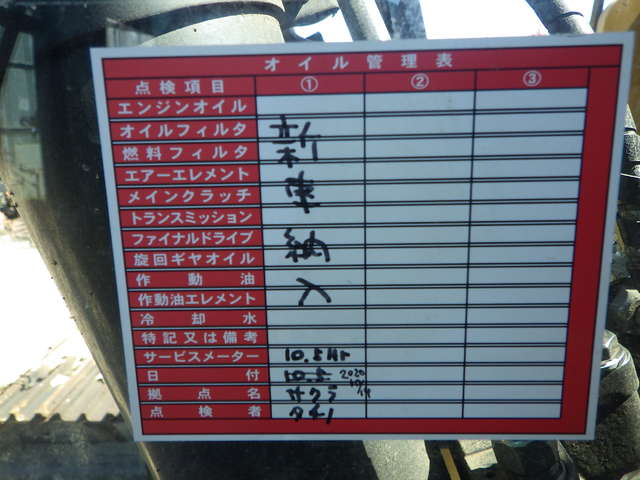 オイル管理表
点検項目 ① ② ③
エンジンオイル
オイルフィルタ 新
燃料フィルタ
エアーエレメント
メインクラッチ 車
トランスミッション
ファイナルドライブ 納
旋回ギヤオイル
作動油
作動油エレメント 入
冷却水
特記又は備考
サービスメーター 10.5Hr
日付 10.5 2020 10/14
拠点名 サクラ
点検者